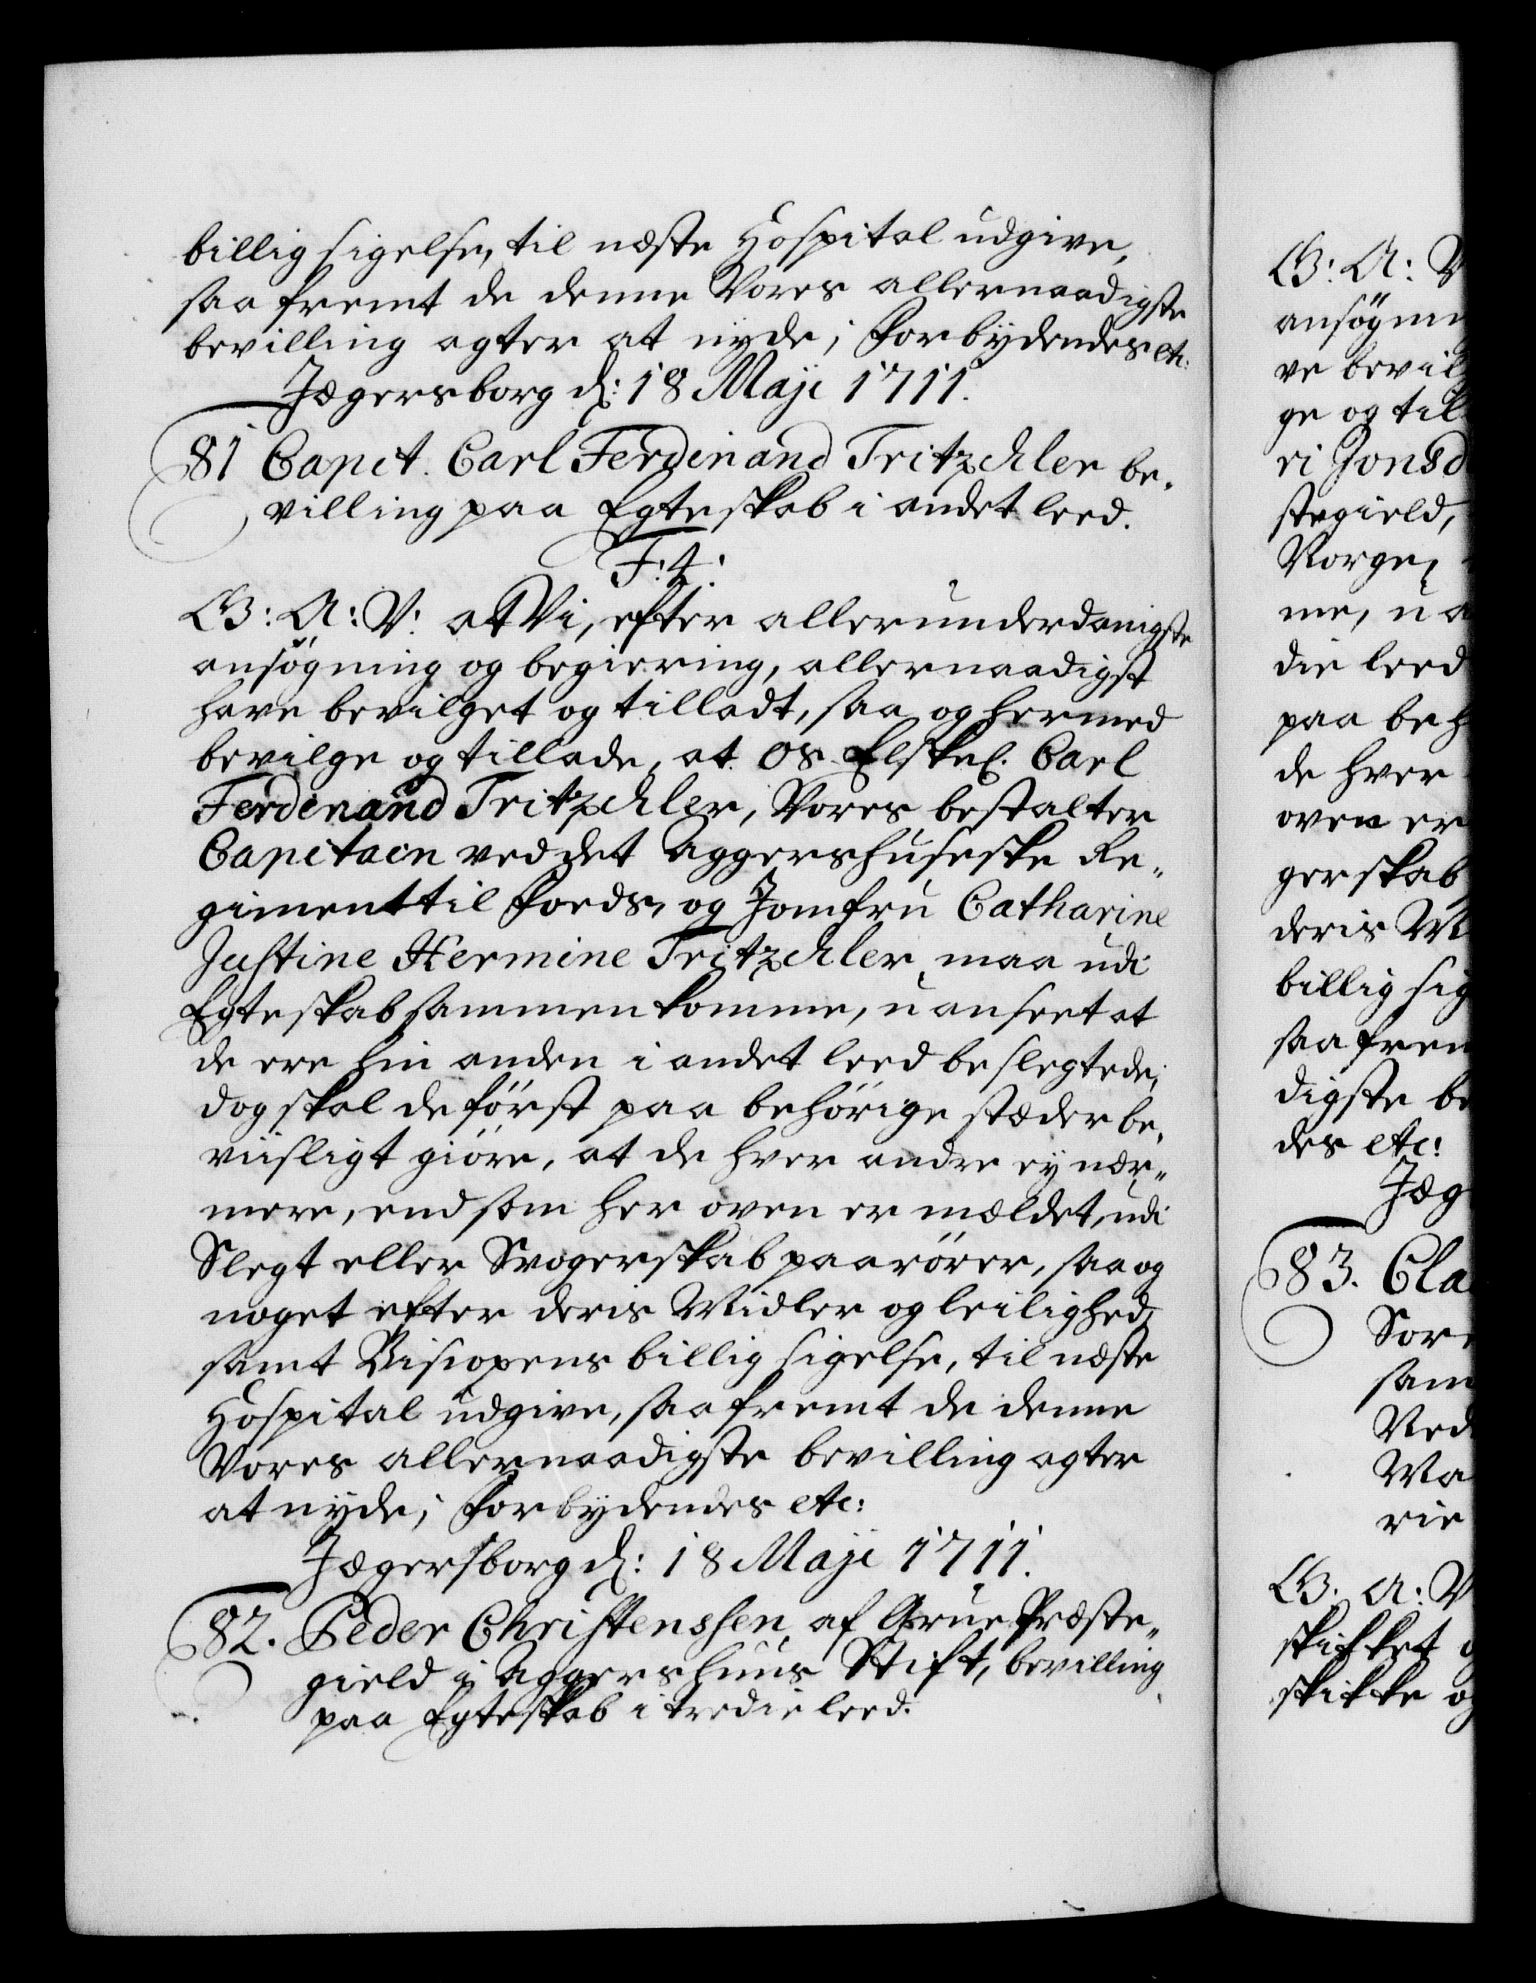 billig sigelse, til næste Hospital udgive,
saa fremt de denne Vores allernaadigste
bevilling agter at nyde; Forbydendes etc:
Jægersborg d: 18 Maji 1711.
81 Capit. Carl Ferdinand Tritzschler be-
villing paa Egteskab i andet leed.
F: 4:
G: A: V: at Vi, efter allerunderdanigste
ansøgning og begiering, allernaadigst
have bevilget og tilladt, saa og hermed
bevilge og tillade, at os Elskel. Carl
Ferdinand Tritzschler, Vores bestalter
Capitain ved det Aggershuseske Re-
giment til Foeds, og Jomfru Catharine
Justine Hermine Tritzschler, maa udi
Egteskab sammen komme, uanseet at
de ere hin anden i andet leed beslegtede;
dog skal de først paa behörige stæder be-
viisligt giöre, at de hver andre ey nær-
mere, end som her oven er mældet, udi
Slegt eller Svogerskab paarörer, saa og
noget efter deris Midler og leilighed,
samt Biscopens billig sigelse, til næste
Hospital udgive, saa fremt de denne
Vores allernaadigste bevilling agter
at nyde; Forbydendes etc:
Jægersborg d: 18 Maji 1711.
82. Peder Christenssen, af Grue Præste-
gield i Aggershuus Stift, bevilling
paa Egteskab i tredie leed.
G: A: V
ansøgnin
ve bevil
ge og til
ri Jonsd
stegield,
Norge,
me, ua
die leed
paa beh
de hver
oven er
gerskab
deris M
billig sig
saa frem
digste be
des etc:
Jæg
83. Cla
Sor
sam
Ned
Ma
rie
G: A: V
skikket o
skikke og